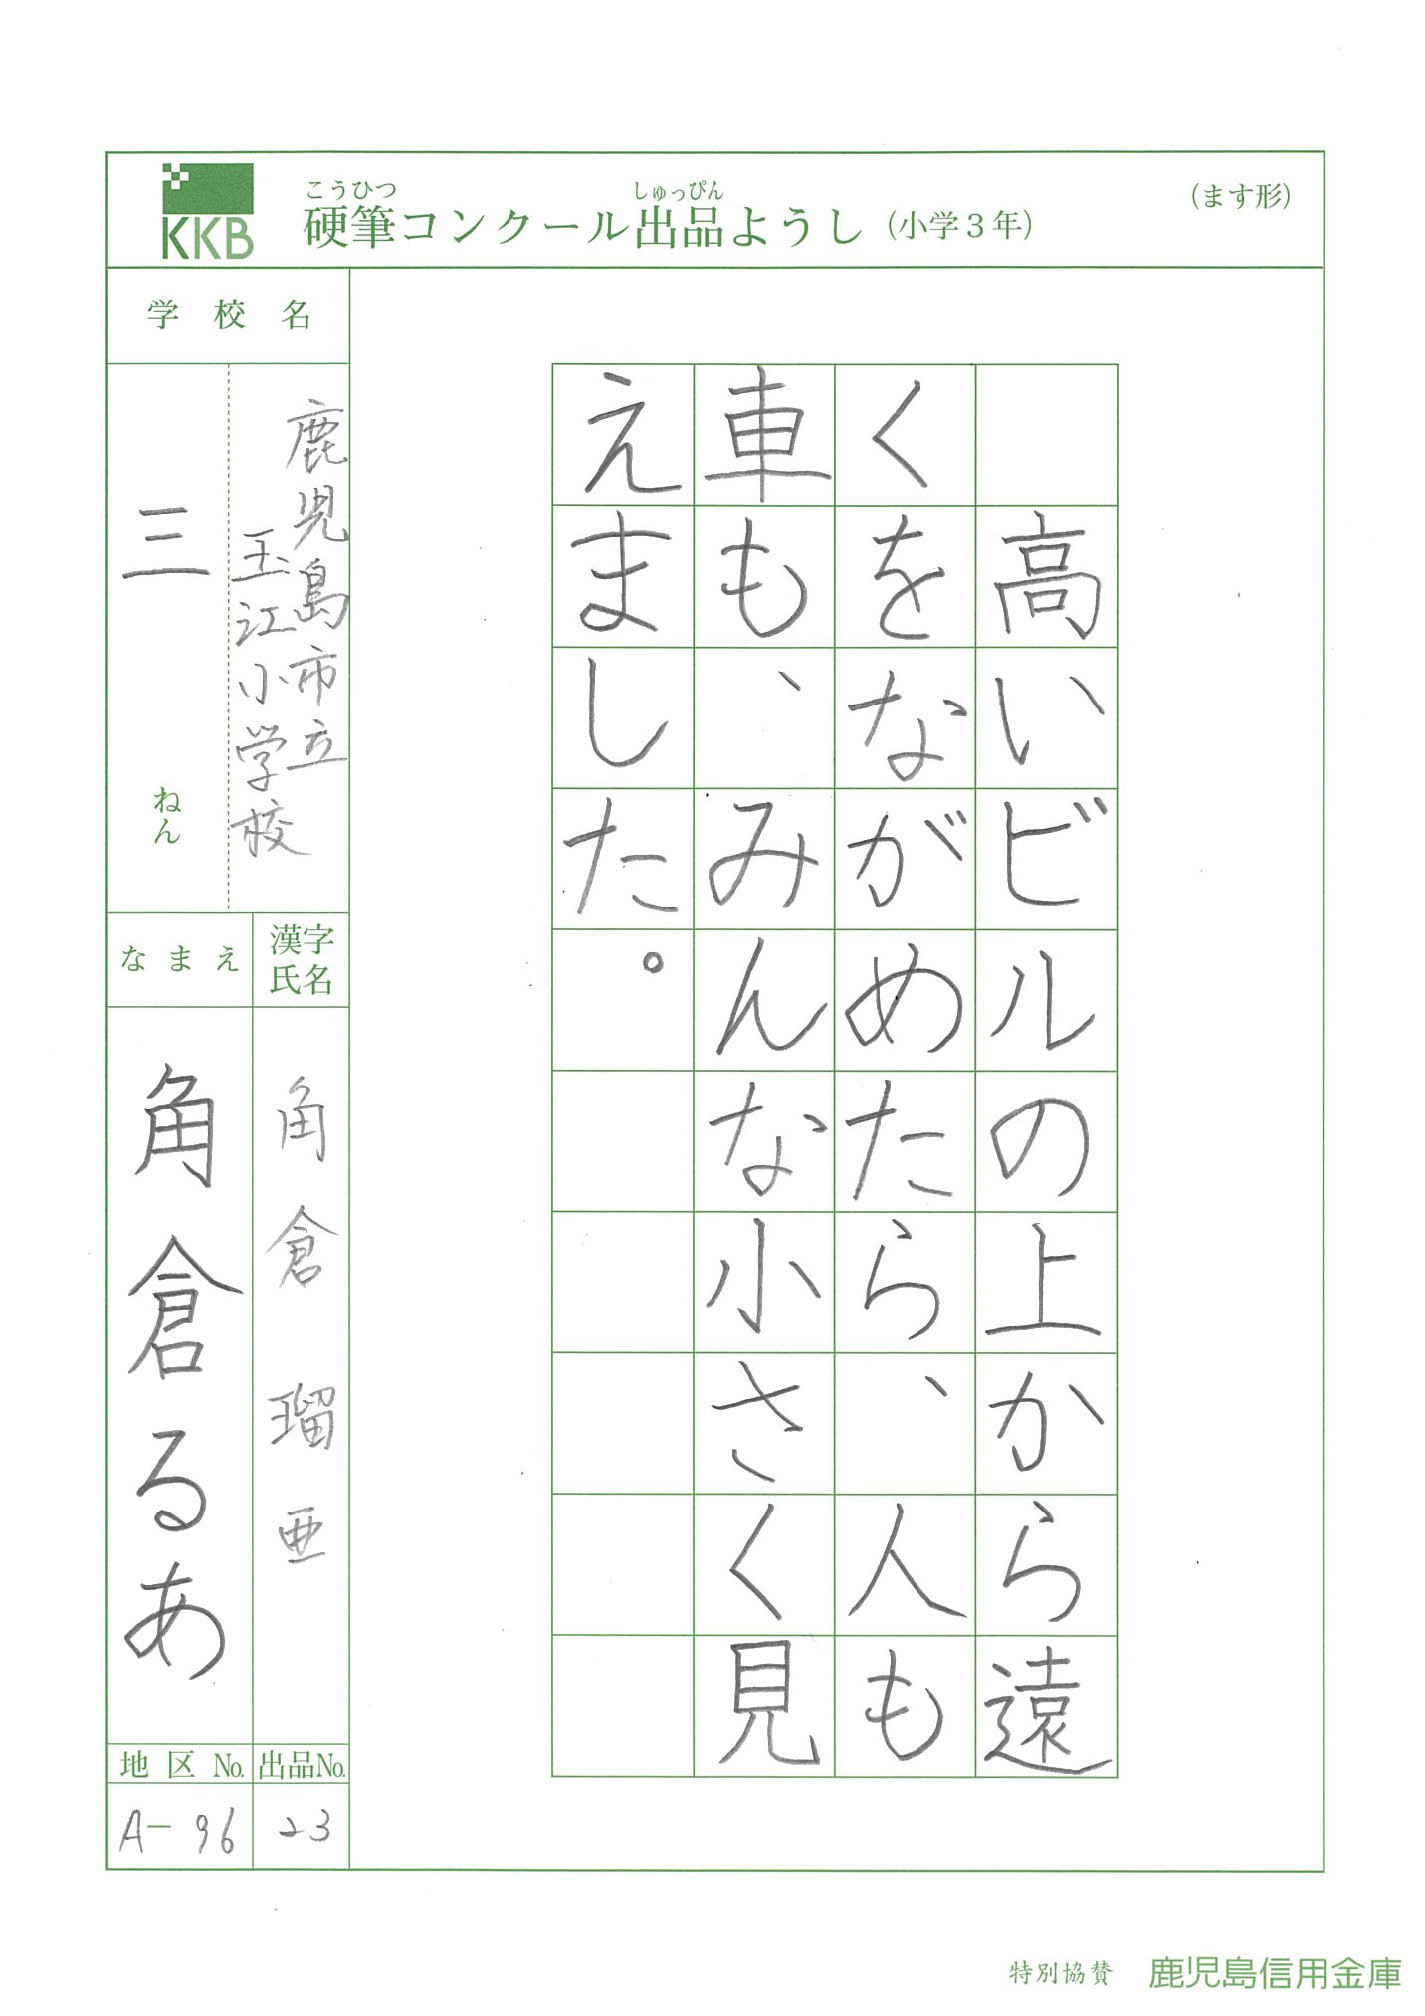 KKB
硬筆コンクール出品ようし（小学３年）
こうひつ
しゅっぴん
（ます形）
高いビルの上から遠
くをながめたら、人も
車も、みんな小さく見
えました。
学校名
鹿児島市立
玉江小学校
三 ねん
漢字氏名
角倉 瑠亜
なまえ
角倉るあ
地区No.
A-96
出品No.
23
特別協賛 鹿児島信用金庫